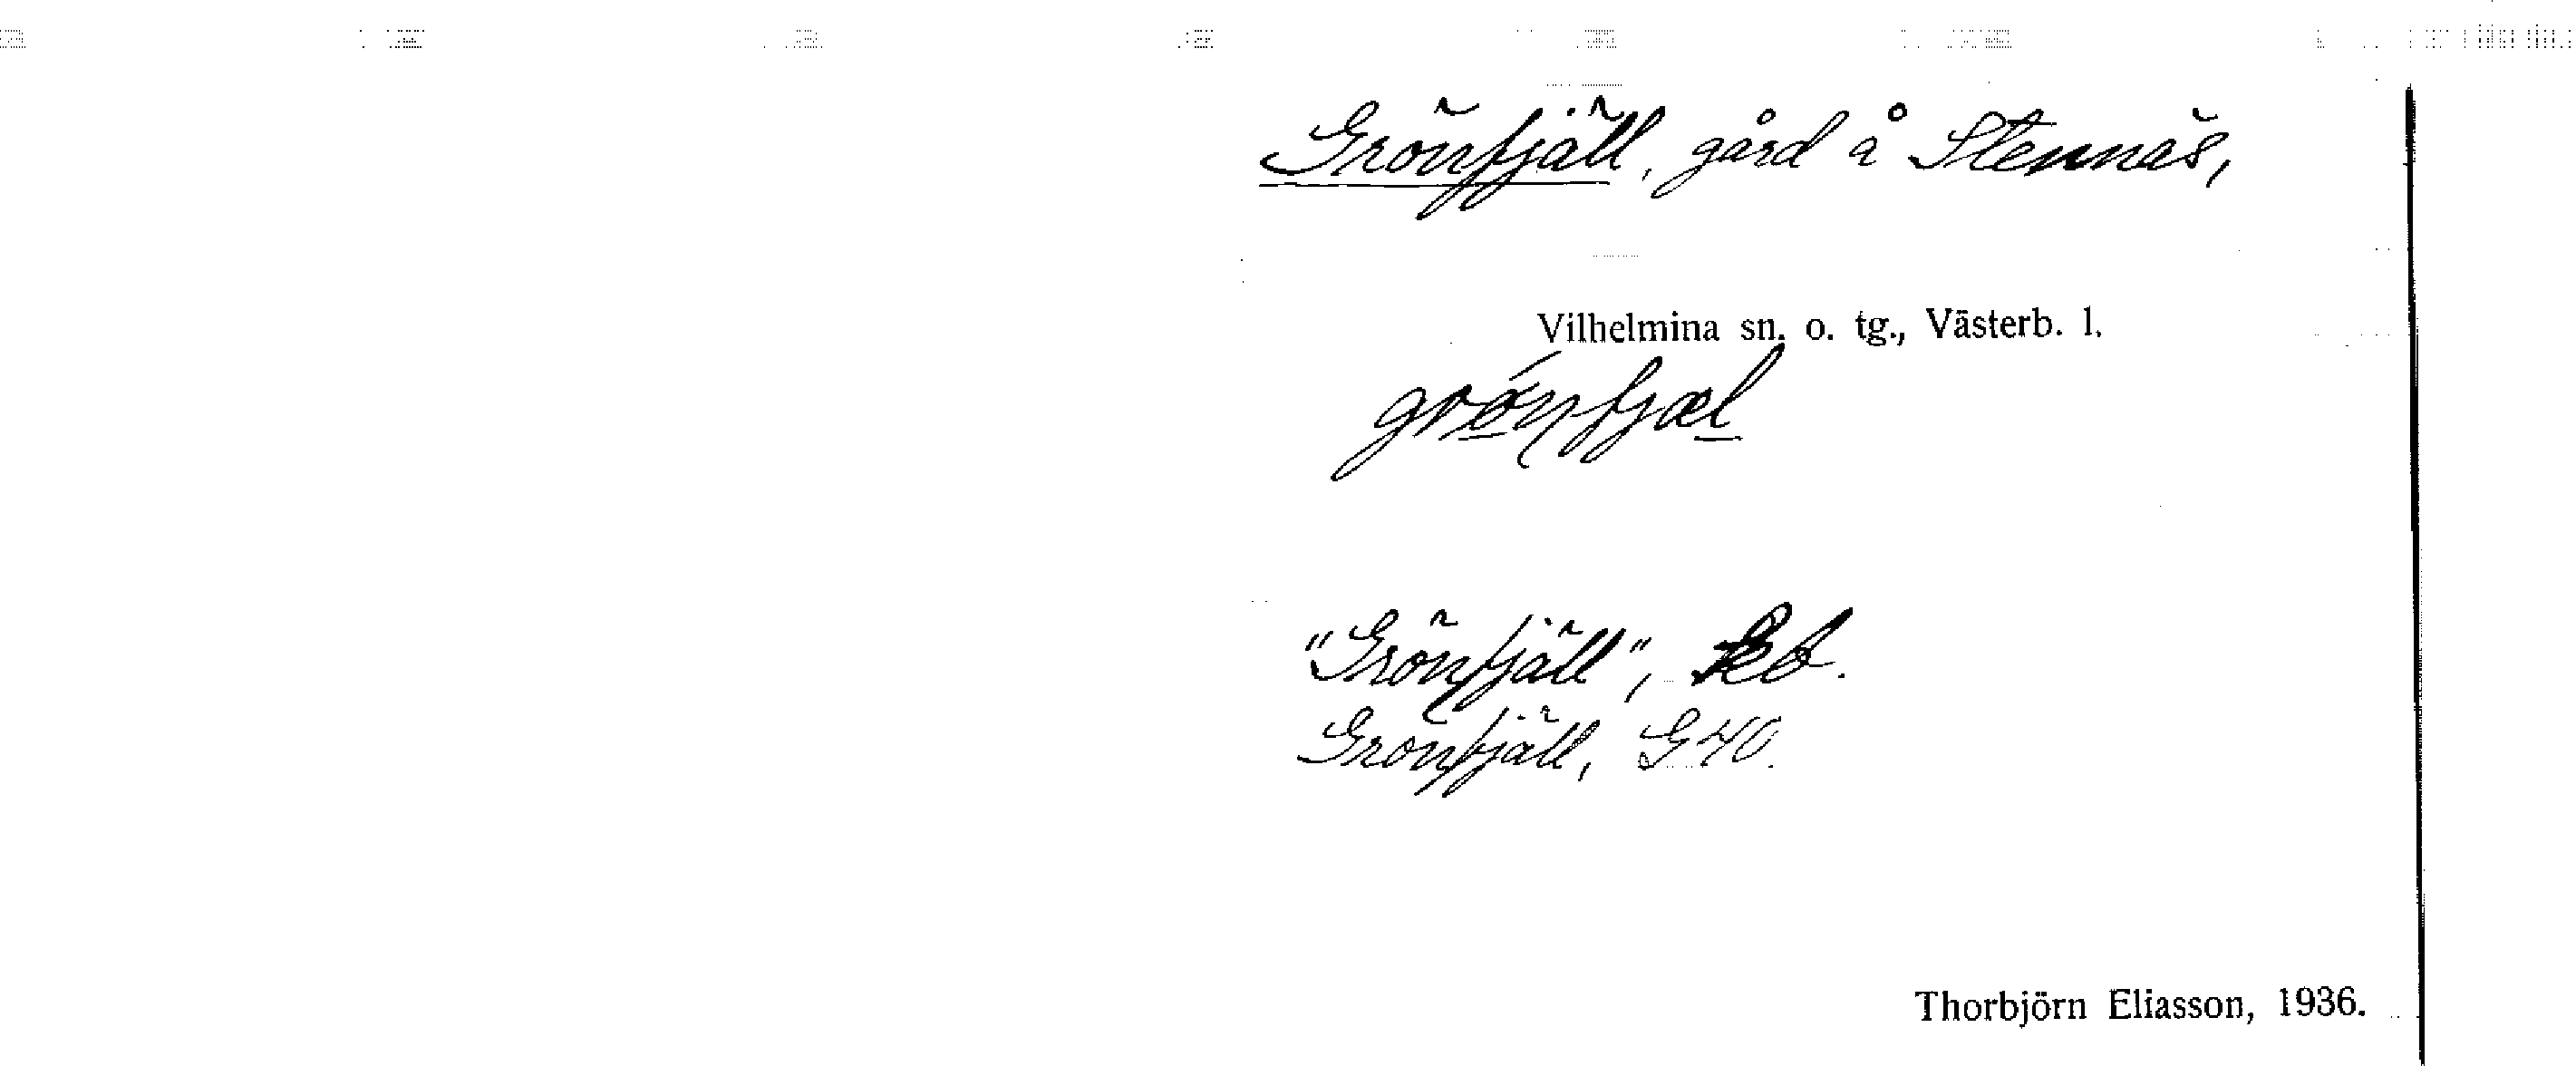 Grönfjäll, gård å Stennäs,
Vilhelmina sn. o. tg., Västerb. l.
grǿnfjæl
"Grönfjäll",
Grönfjäll, G40.
Thorbjörn Eliasson, 1936.